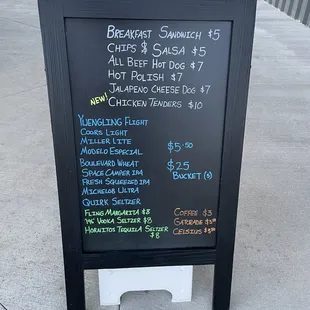 Breakfast Sandwich $5
Chips & Salsa $5
All Beef Hot Dog $7
Hot Polish $7
Jalapeno Cheese Dog $7
NEW! Chicken Tenders $10
Yuengling Flight
Coors Light
Miller Lite
Modelo Especial
Boulevard Wheat
Space Camper IPA
Fresh Squeezed IPA
Michelob Ultra
Quirk Seltzer
$5.50
$25
Bucket (5)
Fling Margarita $8
Vodka Seltzer $8
Hornitos Tequila Seltzer
$8
Coffee $3
Gatorade
Celsius